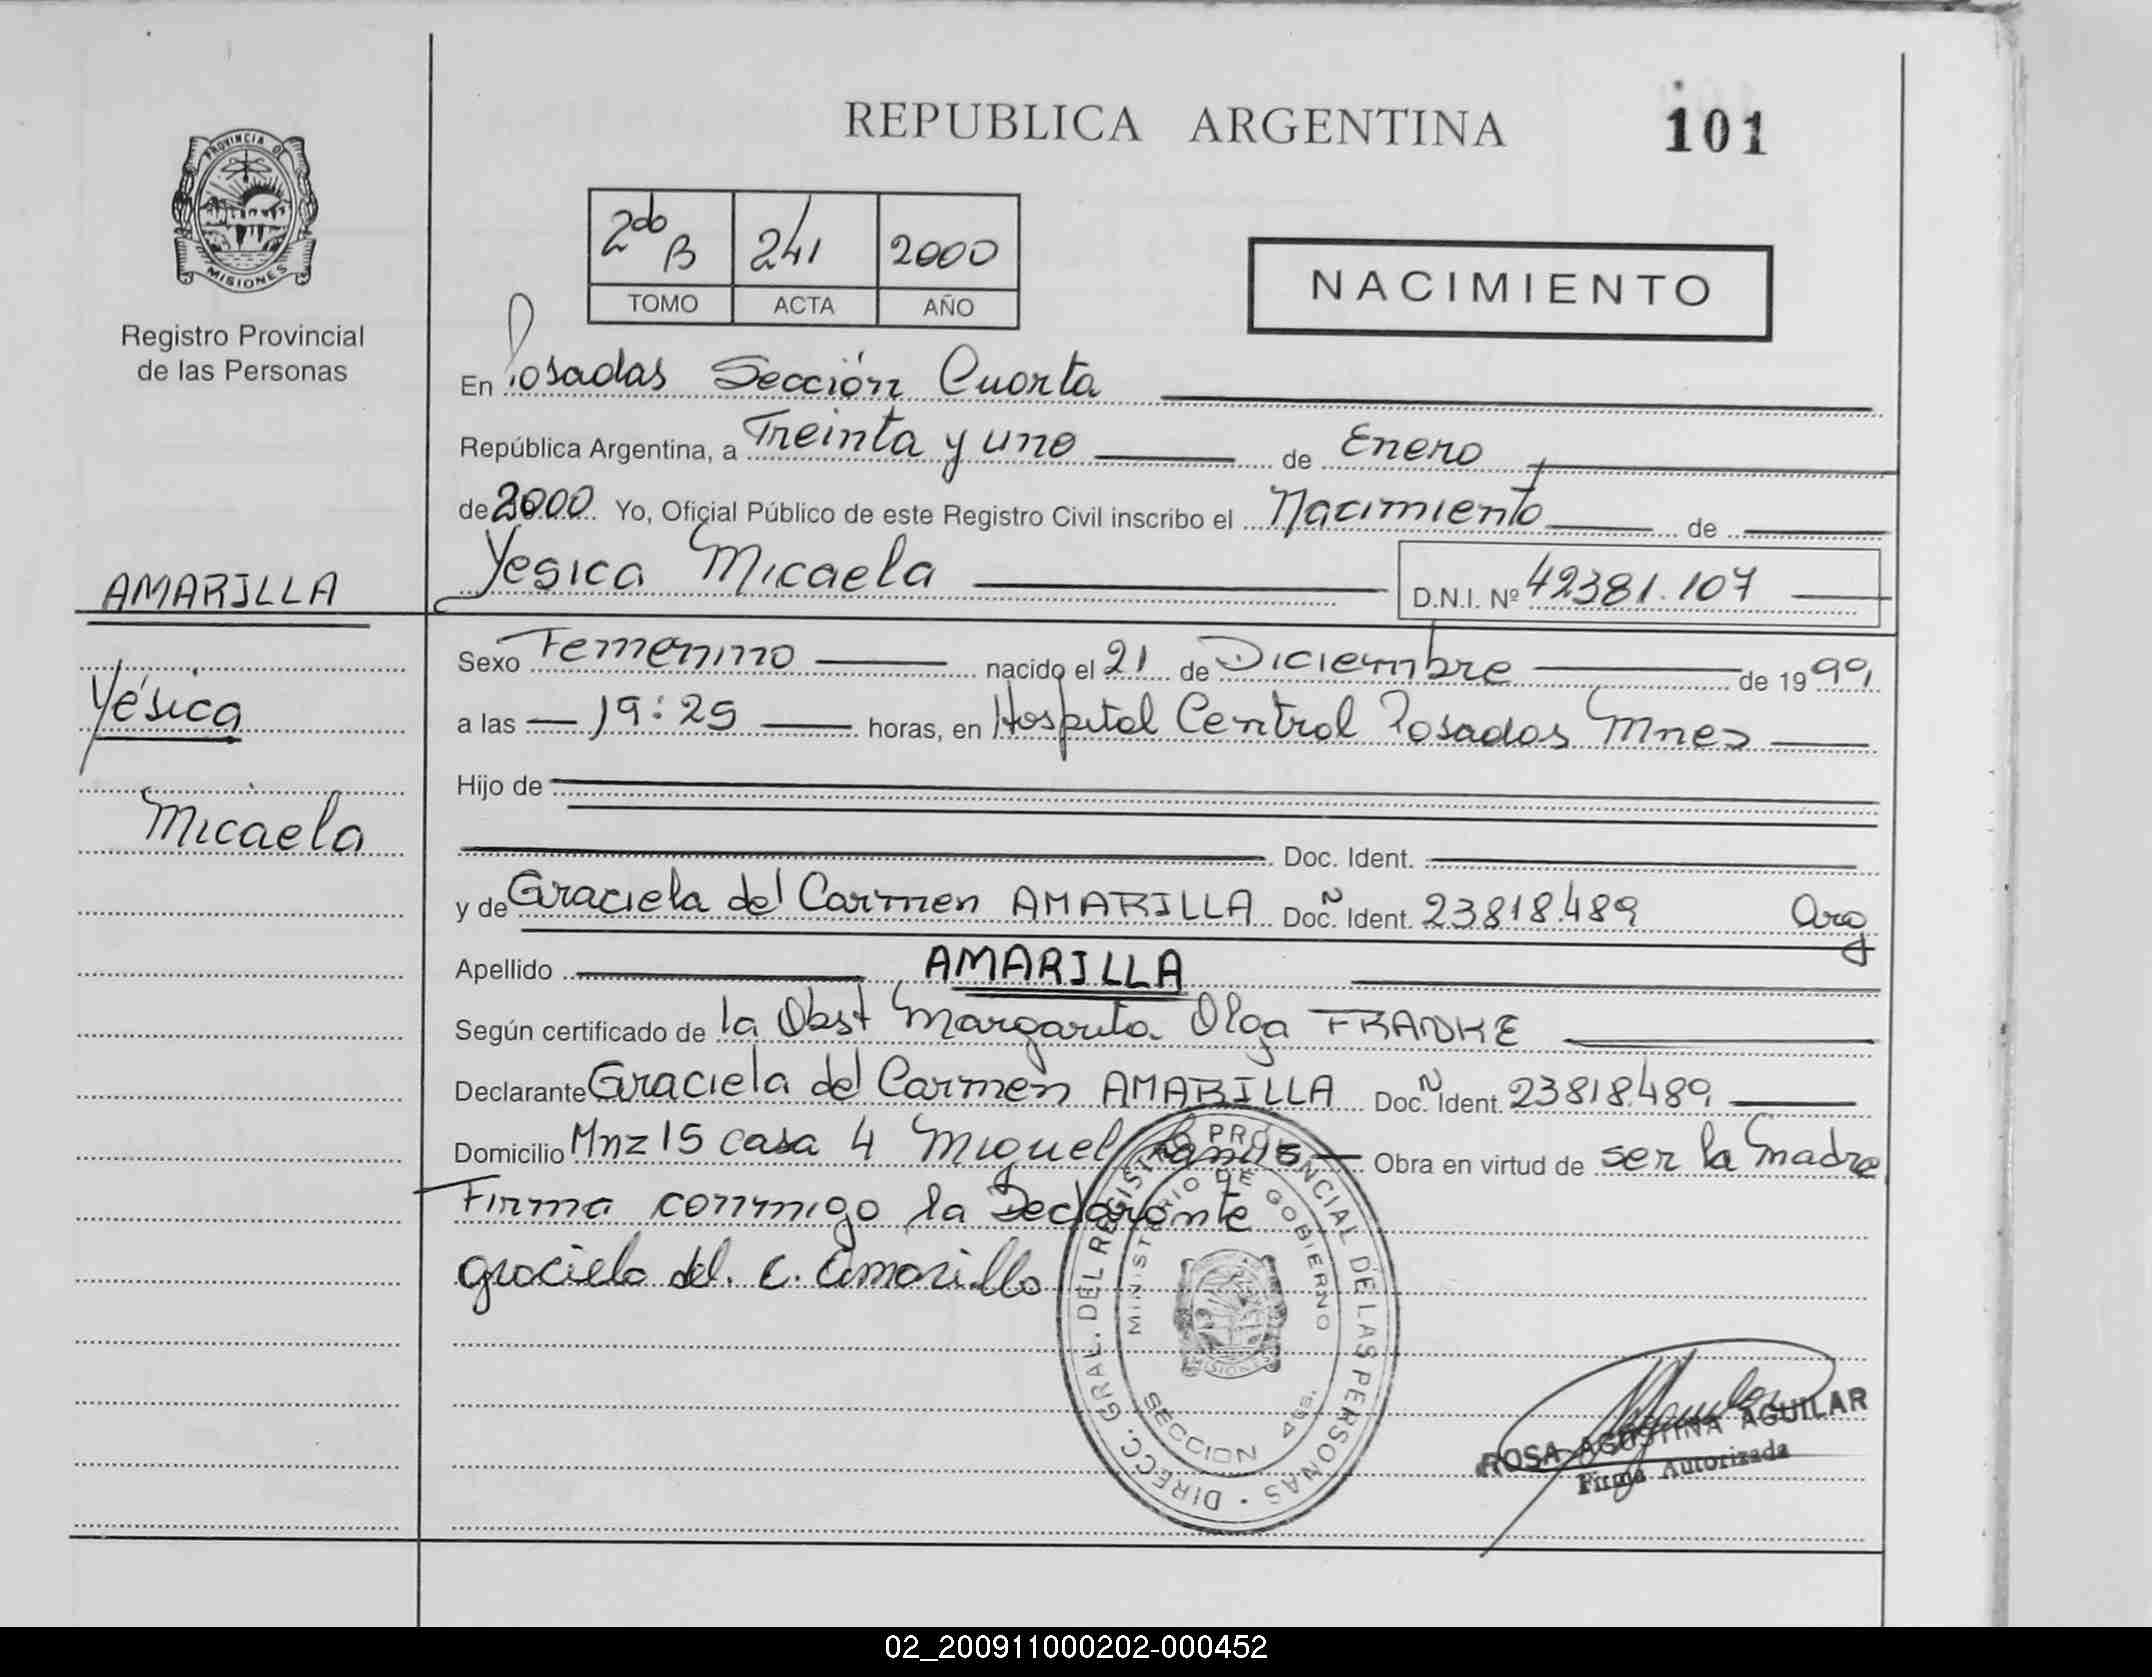 REPUBLICA ARGENTINA
101
PROVINCIA DE
MISIONES
Registro Provincial
de las Personas
2do B 241 2000
TOMO ACTA AÑO
NACIMIENTO
En Posadas Sección Cuarta
República Argentina, a Treinta y uno de Enero
de 2000 Yo, Oficial Público de este Registro Civil inscribo el Nacimiento de
Yesica Micaela D.N.I. Nº 42381.107
AMARILLA
Yésica
Micaela
Sexo Femenino nacido el 21 de Diciembre de 1999
a las 19:25 horas, en Hospital Central Posadas Mnes
Hijo de
Doc. Ident.
y de Graciela del Carmen AMARILLA Doc. N Ident. 23818.489 Arg
Apellido AMARILLA
Según certificado de la Obst Margarita Olga FRANKE
Declarante Graciela del Carmen AMARILLA Doc. N Ident. 23818.489
Domicilio Mnz 15 casa 4 Miguel Lanus Obra en virtud de ser la Madre
Firma conmigo la Declarante
graciela del. C. Amarilla
DIRECC. GRAL. DEL REGISTRO PROVINCIAL DE LAS PERSONAS
MINISTERIO DE GOBIERNO
MISIONES
SECCION 4ta.
ROSA AGUSTINA AGUILAR
Firma Autorizada
02_200911000202-000452